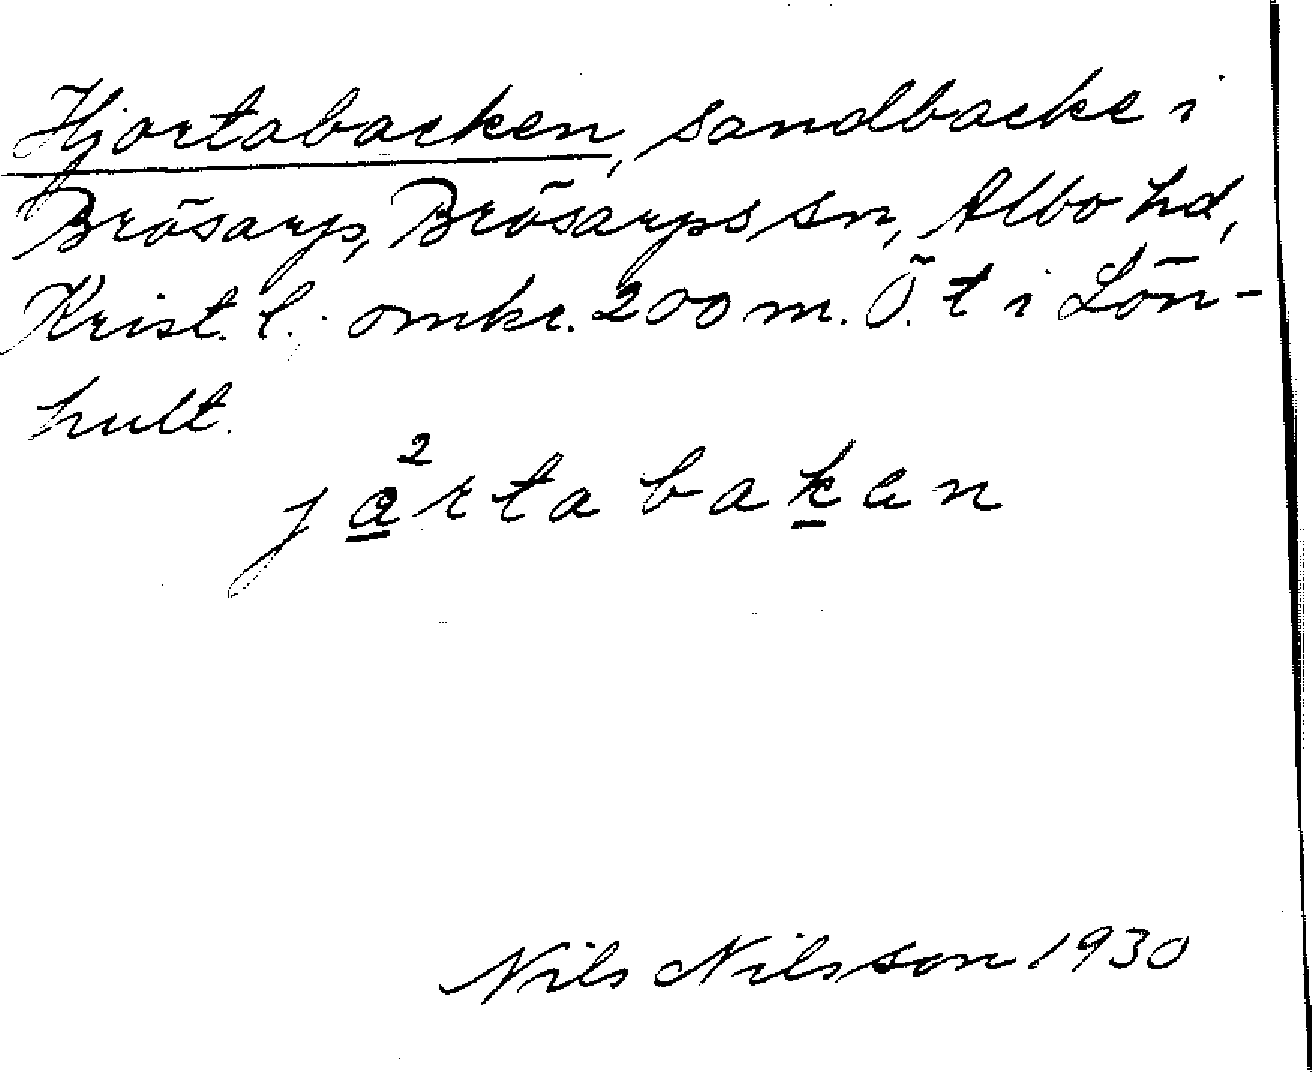 Hjortabacken, sandbacke i
Brösarp, Brösarps sn, Albo hd,
Krist. l.; omkr. 200 m. Ö. t i Lön-
hult.
j²a̲rtabak̲en
Nils Nilsson 1930